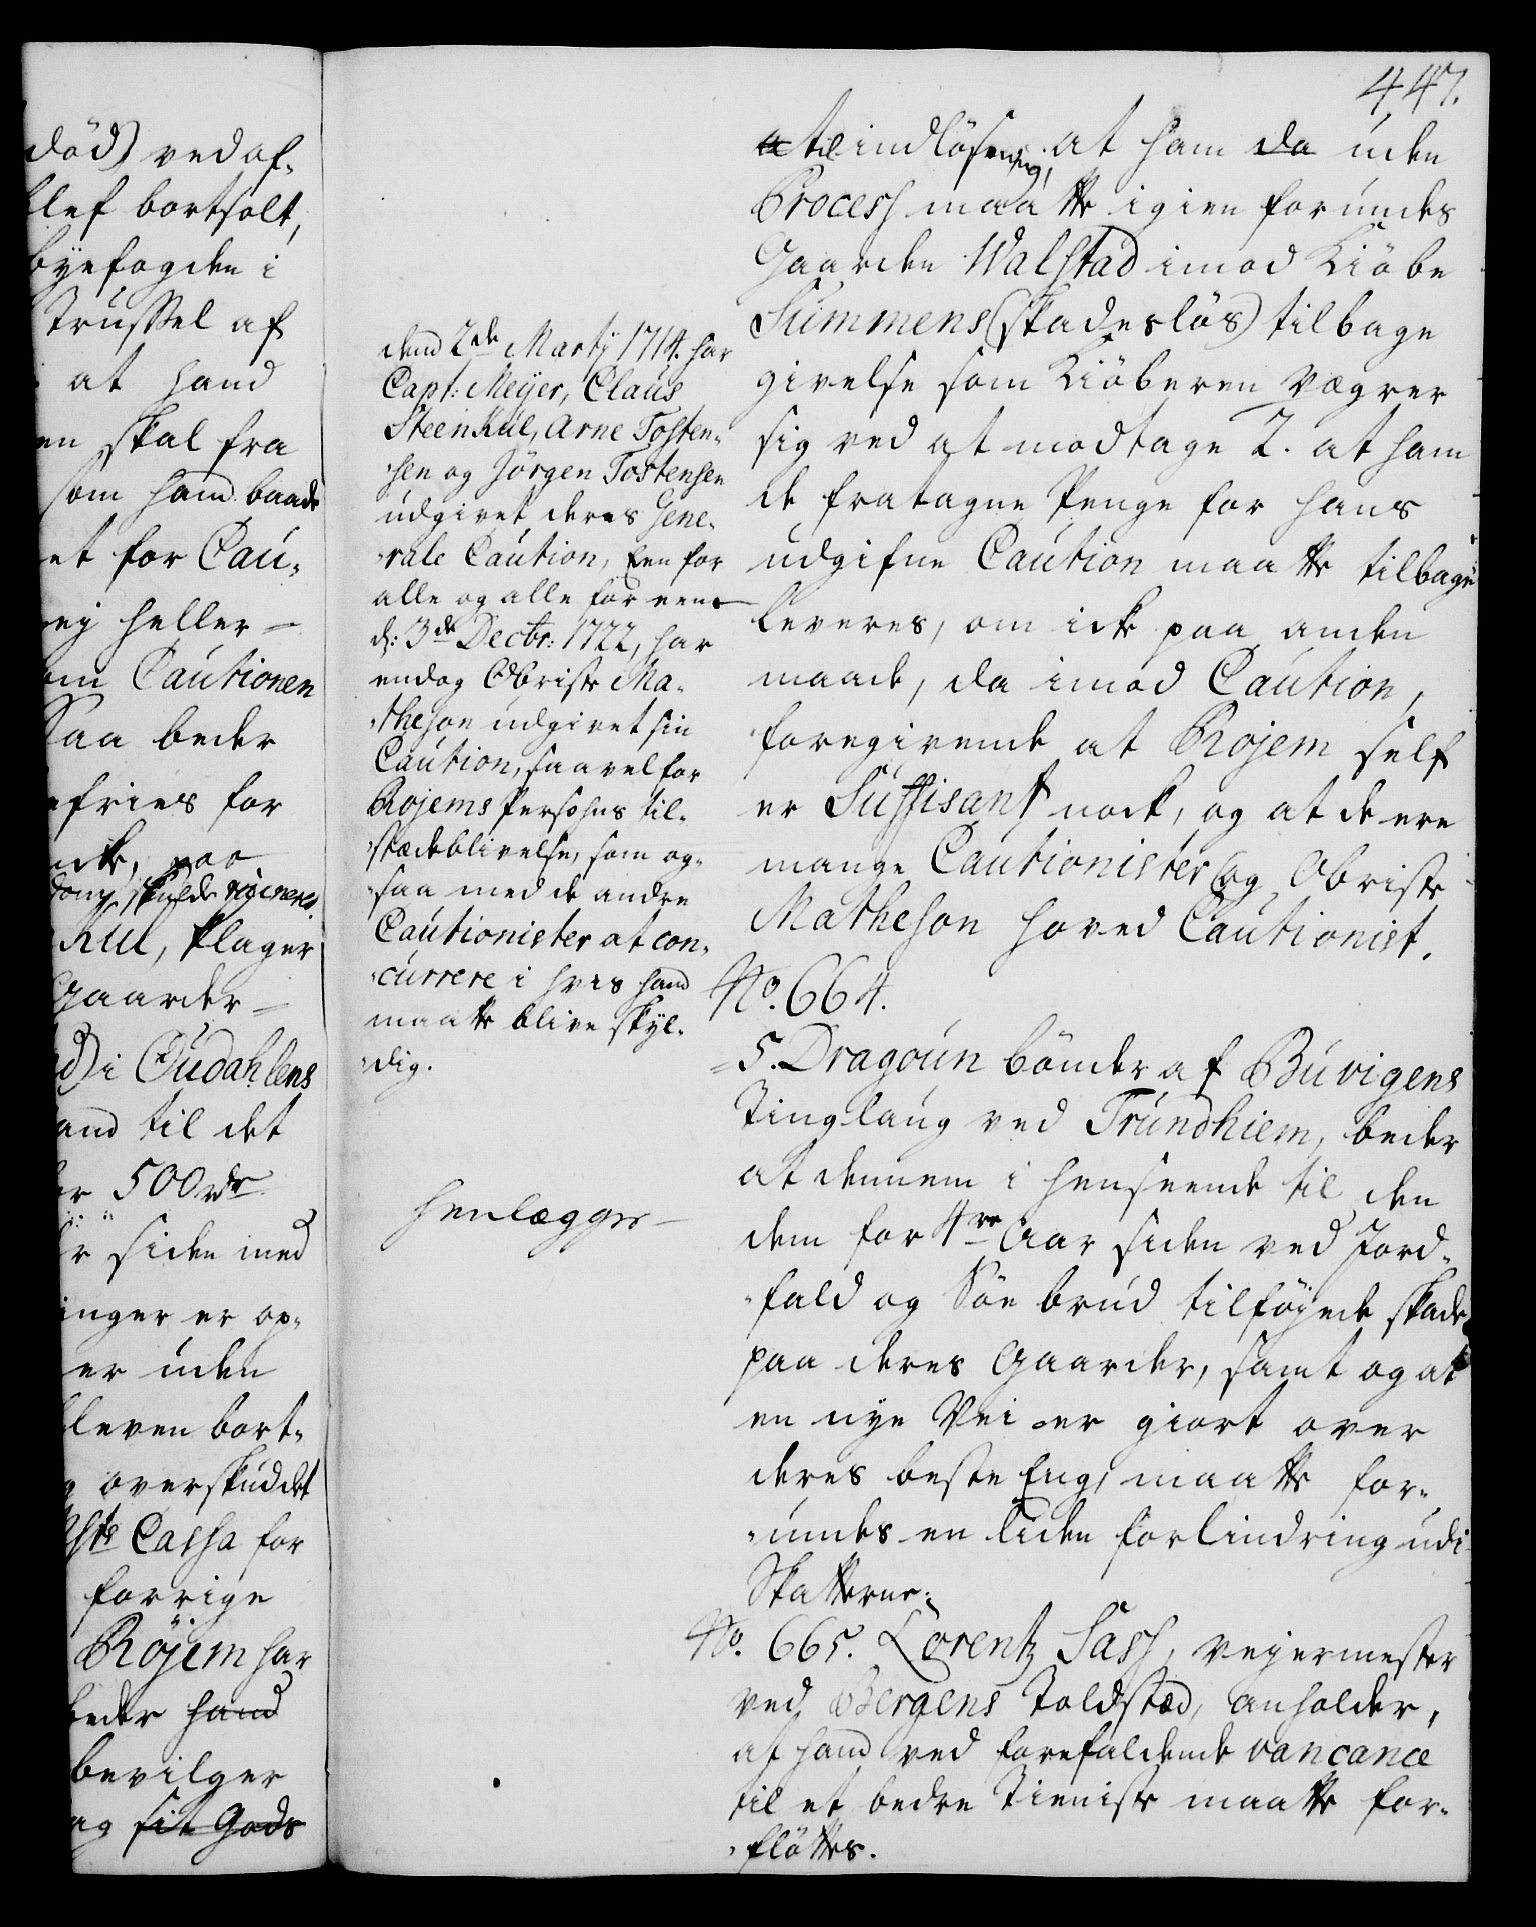 447.
död) ved af-
blef bortsolt,
byefogden i
Trussel af
at hand
en skal fra
som hand baade
et for Cau-
ej heller
om Cautionen
Saa beder
efries for
ick, paa
skulde
Kul, klager
Gaarder
i Oudahlens
and til det
er 500 rdr
r siden med
inger er op-
er uden
bleven bort-
overskuddet
Cassa for
forrige
Röjem har
beder hand
bevilger
og sit Gods
dend 2de Marty 1714. har
Capt: Meÿer, Claus
SteenKul, Arne Tosten-
-sen og Jörgen Tostensen
udgivet deres Gene-
-rale Caution, Een for
alle og alle for een
d: 3de Decbr: 1722, har
endog Obriste Ma-
-theson udgivet sin
Caution, saavel for
Rojems Persohns til-
-stædeblivelse, som og-
-saa med de andre
Cautionister at con-
-currere i hvis hand
maatte blive skyl-
-dig.
henlægges
a til indlösning, at ham da uden
Process maatte igien forundes
Gaarden Walstad imod Kiöbe
Summens (skadeslös) tilbage
givelse som Kiöberen vægrer
sig ved at modtage 2. at ham
de fratagne Penge for hans
udgifne Caution maatte tilbage
leveres, om ick paa anden
maade, da imod Caution,
foregivende at Rojem self
er Suffisant nock, og at de ere
mange Cautionister og Obriste
Matheson hoved Cautionist.
No. 664.
5. Dragoun bönder af Buvigens
Tinglaug ved Trundhiem, beder
at dennem i henseende til den
dem for 4re Aar siden ved Jord-
-fald og Söe brud tilföyede skade
paa deres Gaarder, samt og at
en nye Vei er giort over
deres beste Eng, maatte for-
-undes en liden forlindring udi
Skatterne.
No. 665. Lorentz Sass, vejermester
ved Bergens Toldstæd, anholder,
at hand ved forefaldende vancance
til et bedre Tieniste maatte for-
-flöttes.